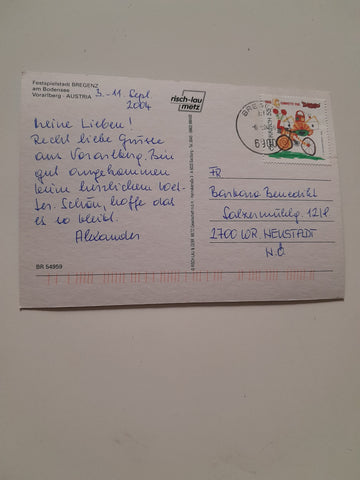 Festspielstadt BREGENZ
am Bodensee
Vorarlberg - AUSTRIA
3.-11. Sept.
2004
risch-lau
metz
Meine Lieben!
Recht liebe Grüsse
aus Vorarlberg. Bin
gut angekommen
beim herrlichem Wet-
ter. Schön, hoffe daß
es so bleibt.
Alexander
BR 54959
BREGENZ
6900
FR
Barbara Benedikt
12/8
2700 WR. NEUSTADT
N.Ö